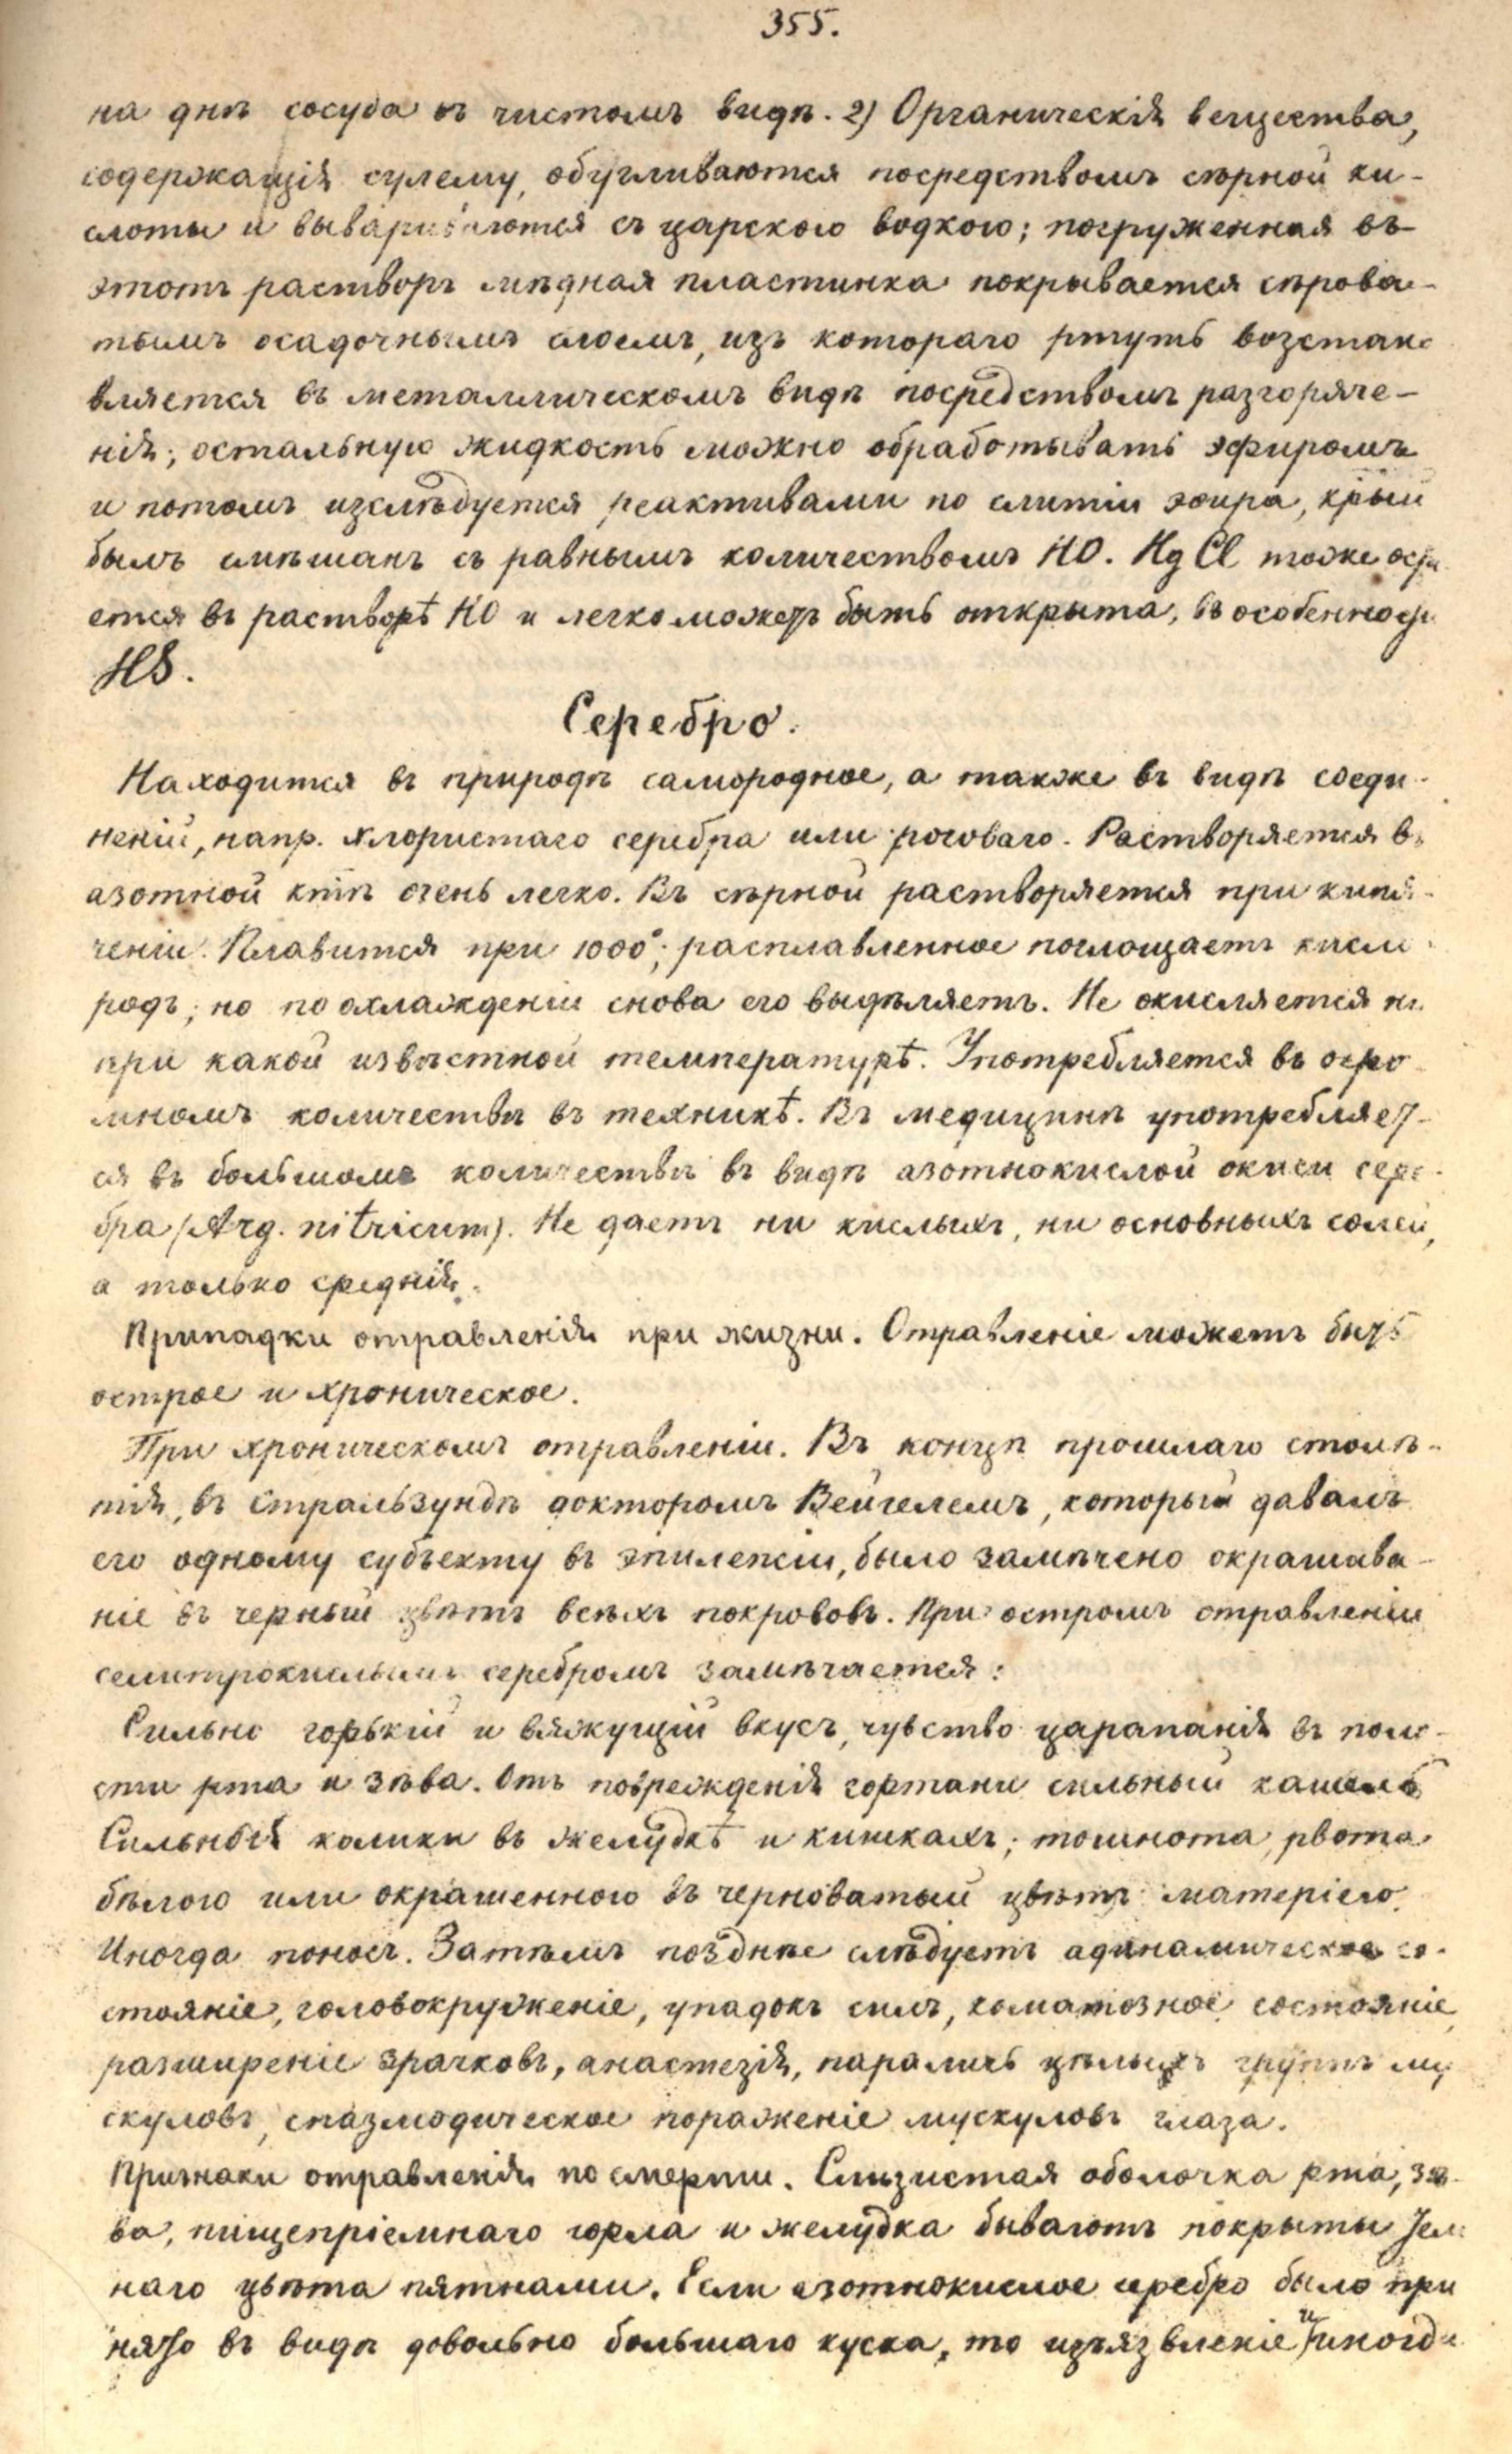 355.
на днѣ сосуда въ чистомъ видѣ. 2) Органическія вещества,
содержащія сулему, обугливаются посредствомъ сѣрной ки-
слоты и вывариваются съ царскою водкою; погруженная въ
этотъ растворъ мѣдная пластинка покрывается сѣрова-
тымъ осадочнымъ слоемъ, изъ котораго ртуть возстано
вляется въ металлическомъ видѣ посредствомъ разгоряче-
нія; остальную жидкость можно обработывать эфиромъ
и потомъ изслѣдуется реактивами по слитіи эѳира, крый
былъ смѣшанъ съ равнымъ количествомъ HO. Hg Cl тоже оста
ется въ растворѣ HO и легко можетъ быть открыта, въ особенности
HS.
Серебро.
Находится въ природѣ самородное, а также въ видѣ соеди-
неній, напр. хлористаго серебра или роговаго. Растворяется въ
азотной ктѣ очень легко. Въ сѣрной растворяется при кипя-
ченіи. Плавится при 1000°; расплавленное поглощаетъ кисло
родъ; но по охлажденіи снова его выдѣляетъ. Не окисляется ни
при какой извѣстной температурѣ. Употребляется въ огро
мномъ количествѣ въ техникѣ. Въ медицинѣ употребляет-
ся въ большомъ количествѣ въ видѣ азотнокислой окиси сере-
бра (Arg. nitricum). Не даетъ ни кислыхъ, ни основныхъ солей,
а только среднія.
Припадки отравленія при жизни. Отравленіе можетъ быть
острое и хроническое.
При хроническомъ отравленіи. Въ концѣ прошлаго столѣ-
тія, въ Стральзундѣ докторомъ Вейгелемъ, который давалъ
его одному субъекту въ эпилепсіи, было замѣчено окрашива-
ніе въ черный цвѣтъ всѣхъ покрововъ. При остромъ отравленіи
селитрокислымъ серебромъ замѣчается:
Сильно горькій и вяжущій вкусъ, чувство царапанія въ поло-
сти рта и зѣва. Отъ поврежденія гортани сильный кашель
Сильныя колики въ желудкѣ и кишкахъ; тошнота, рвота
бѣлою или окрашенною въ черноватый цвѣтъ матеріею.
Иногда поносъ. Затѣмъ позднѣе слѣдуетъ адинамическое со-
стояніе, головокруженіе, упадокъ силъ, коматозное состояніе,
расширеніе зрачковъ, анастезія, параличъ цѣлыхъ группъ му
скуловъ, спазмодическое пораженіе мускуловъ глаза.
Признаки отравленія по смерти. Слизистая оболочка рта, зѣ-
ва, пищепріемнаго горла и желудка бываютъ покрыты тем
наго цвѣта пятнами. Если азотнокислое серебро было при
нято въ видѣ довольно большаго куска, то изъязвленіе и иногда